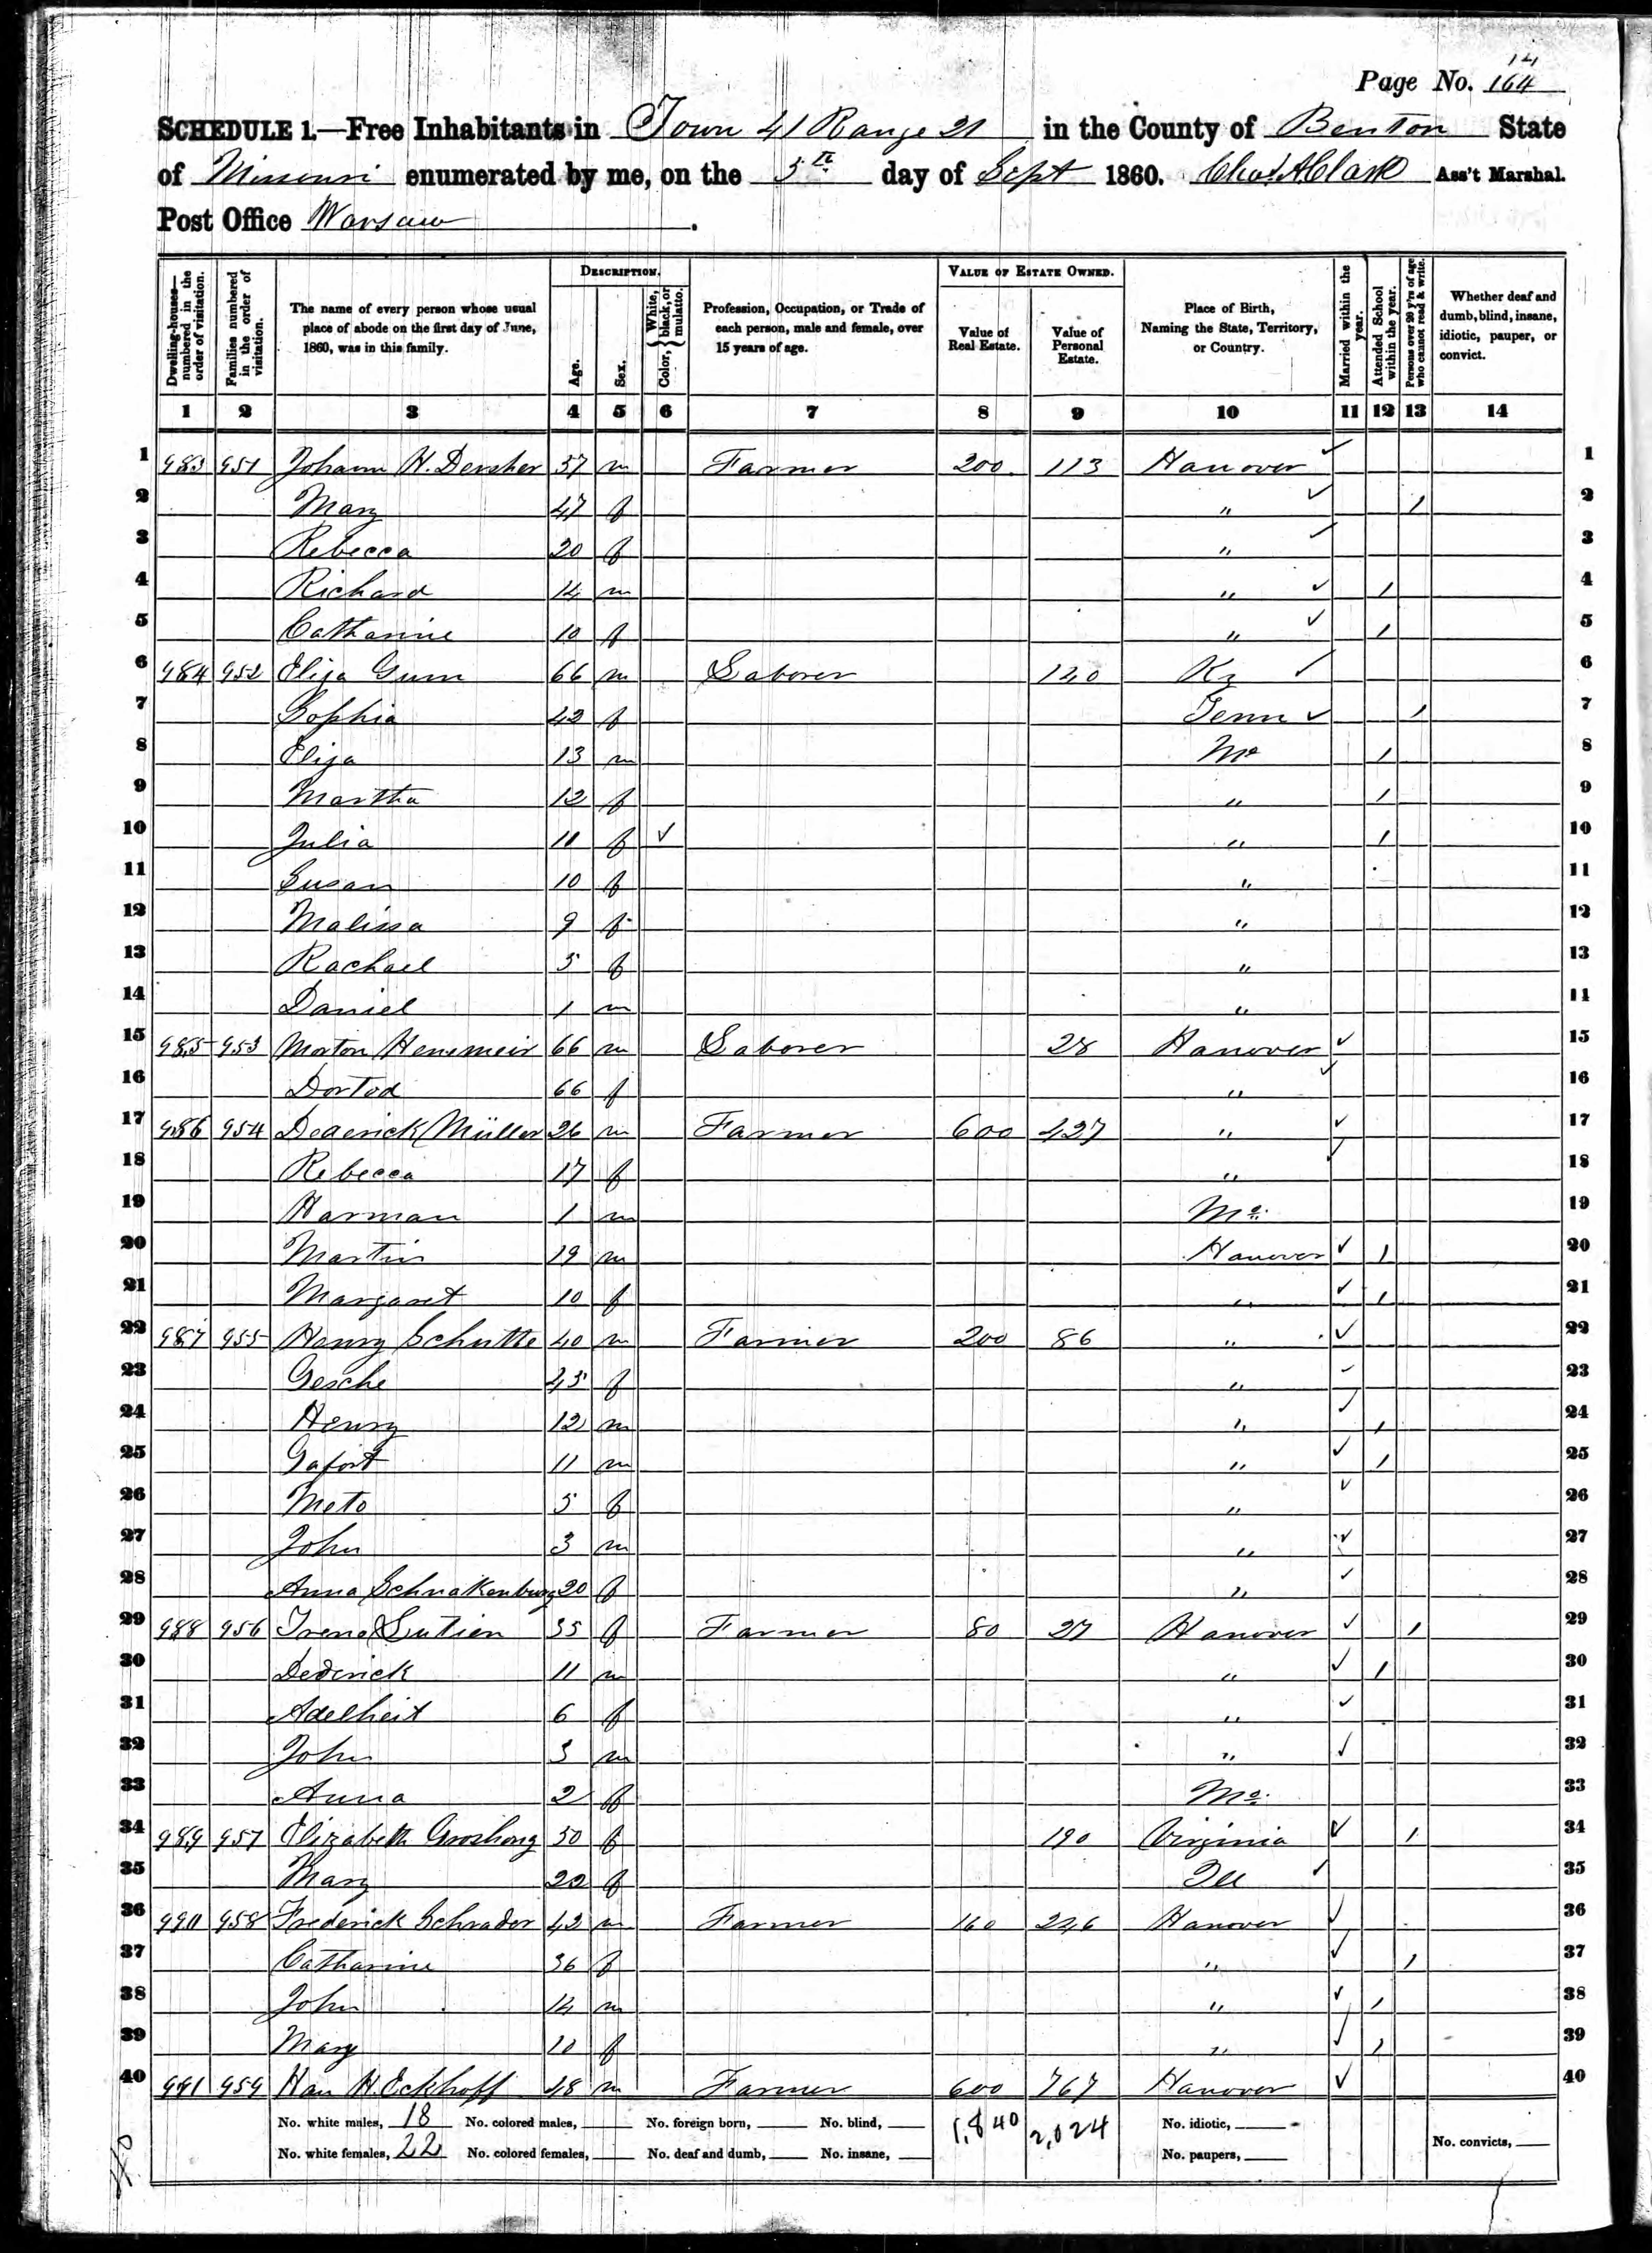 14
Page No. 164
SCHEDULE 1.—Free Inhabitants in Town 41 Range 21 in the County of Benton State
of Missouri enumerated by me, on the 5th day of Sept 1860. Chas A Clark Ass't Marshal.
Post Office Warsaw.
Dwelling-houses—numbered in the order of visitation. Families numbered in the order of visitation. The name of every person whose usual place of abode on the first day of June, 1860, was in this family. DESCRIPTION. Age. Sex. Color, { White, black, or mulatto. Profession, Occupation, or Trade of each person, male and female, over 15 years of age. VALUE OF ESTATE OWNED. Value of Real Estate. Value of Personal Estate. Place of Birth, Naming the State, Territory, or Country. Married within the year. Attended School within the year. Persons over 20 y'rs of age who cannot read & write. Whether deaf and dumb, blind, insane, idiotic, pauper, or convict.
1 2 3 4 5 6 7 8 9 10 11 12 13 14
1 983 951 Johann H. 57 m Farmer 200 113 Hanover ✓ 1
2 Mary 47 f " ✓ / 2
3 Rebecca 20 f " ✓ 3
4 Richard 14 m " ✓ / 4
5 Catharine 10 f " ✓ / 5
6 984 952 Eliza Gum 66 m Laborer 120 Ky ✓ 6
7 Sophia 42 f Tenn ✓ / 7
8 Eliza 13 m Mo / 8
9 Martha 12 f " / 9
10 Julia 11 f ✓ " / 10
11 Susan 10 f " 11
12 Malissa 9 f " 12
13 Rachael 5 f " 13
14 Daniel 1 m " 14
15 985 953 Morton Hensmeir 66 m Laborer 28 Hanover ✓ 15
16 Dortod 66 f " ✓ 16
17 986 954 Dederick Müller 26 m Farmer 600 427 " ✓ 17
18 Rebecca 17 f " ✓ 18
19 Harman 1 m Mo. 19
20 Martin 19 m Hanover ✓ / 20
21 Margaret 10 f " ✓ / 21
22 987 955 Henry Schutte 40 m Farmer 200 86 " ✓ 22
23 Gesche 45 f " ✓ 23
24 Henry 12 m " ✓ / 24
25 11 m " ✓ / 25
26 Meto 5 f " ✓ 26
27 John 3 m " ✓ 27
28 Anna Schnakenburg 20 f " ✓ 28
29 988 956 Trena Lutien 35 f Farmer 80 27 Hanover ✓ / 29
30 Dederick 11 m " ✓ / 30
31 Adelheit 6 f " ✓ 31
32 John 3 m " ✓ 32
33 Anna 2 f Mo. 33
34 989 957 Elizabeth Groshong 50 f 190 Virginia ✓ / 34
35 Mary 20 f Ill ✓ 35
36 990 958 Frederick Schrader 42 m Farmer 160 246 Hanover ✓ 36
37 Catharine 36 f " ✓ / 37
38 John 14 m " ✓ / 38
39 Mary 10 f " ✓ / 39
40 991 959 Han H. Eckhoff 48 m Farmer 600 767 Hanover ✓ 40
No. white males, 18 No. colored males, No. foreign born, No. blind, 1,840 2,024 No. idiotic,
No. white females, 22 No. colored females, No. deaf and dumb, No. insane, No. paupers, No. convicts,
40